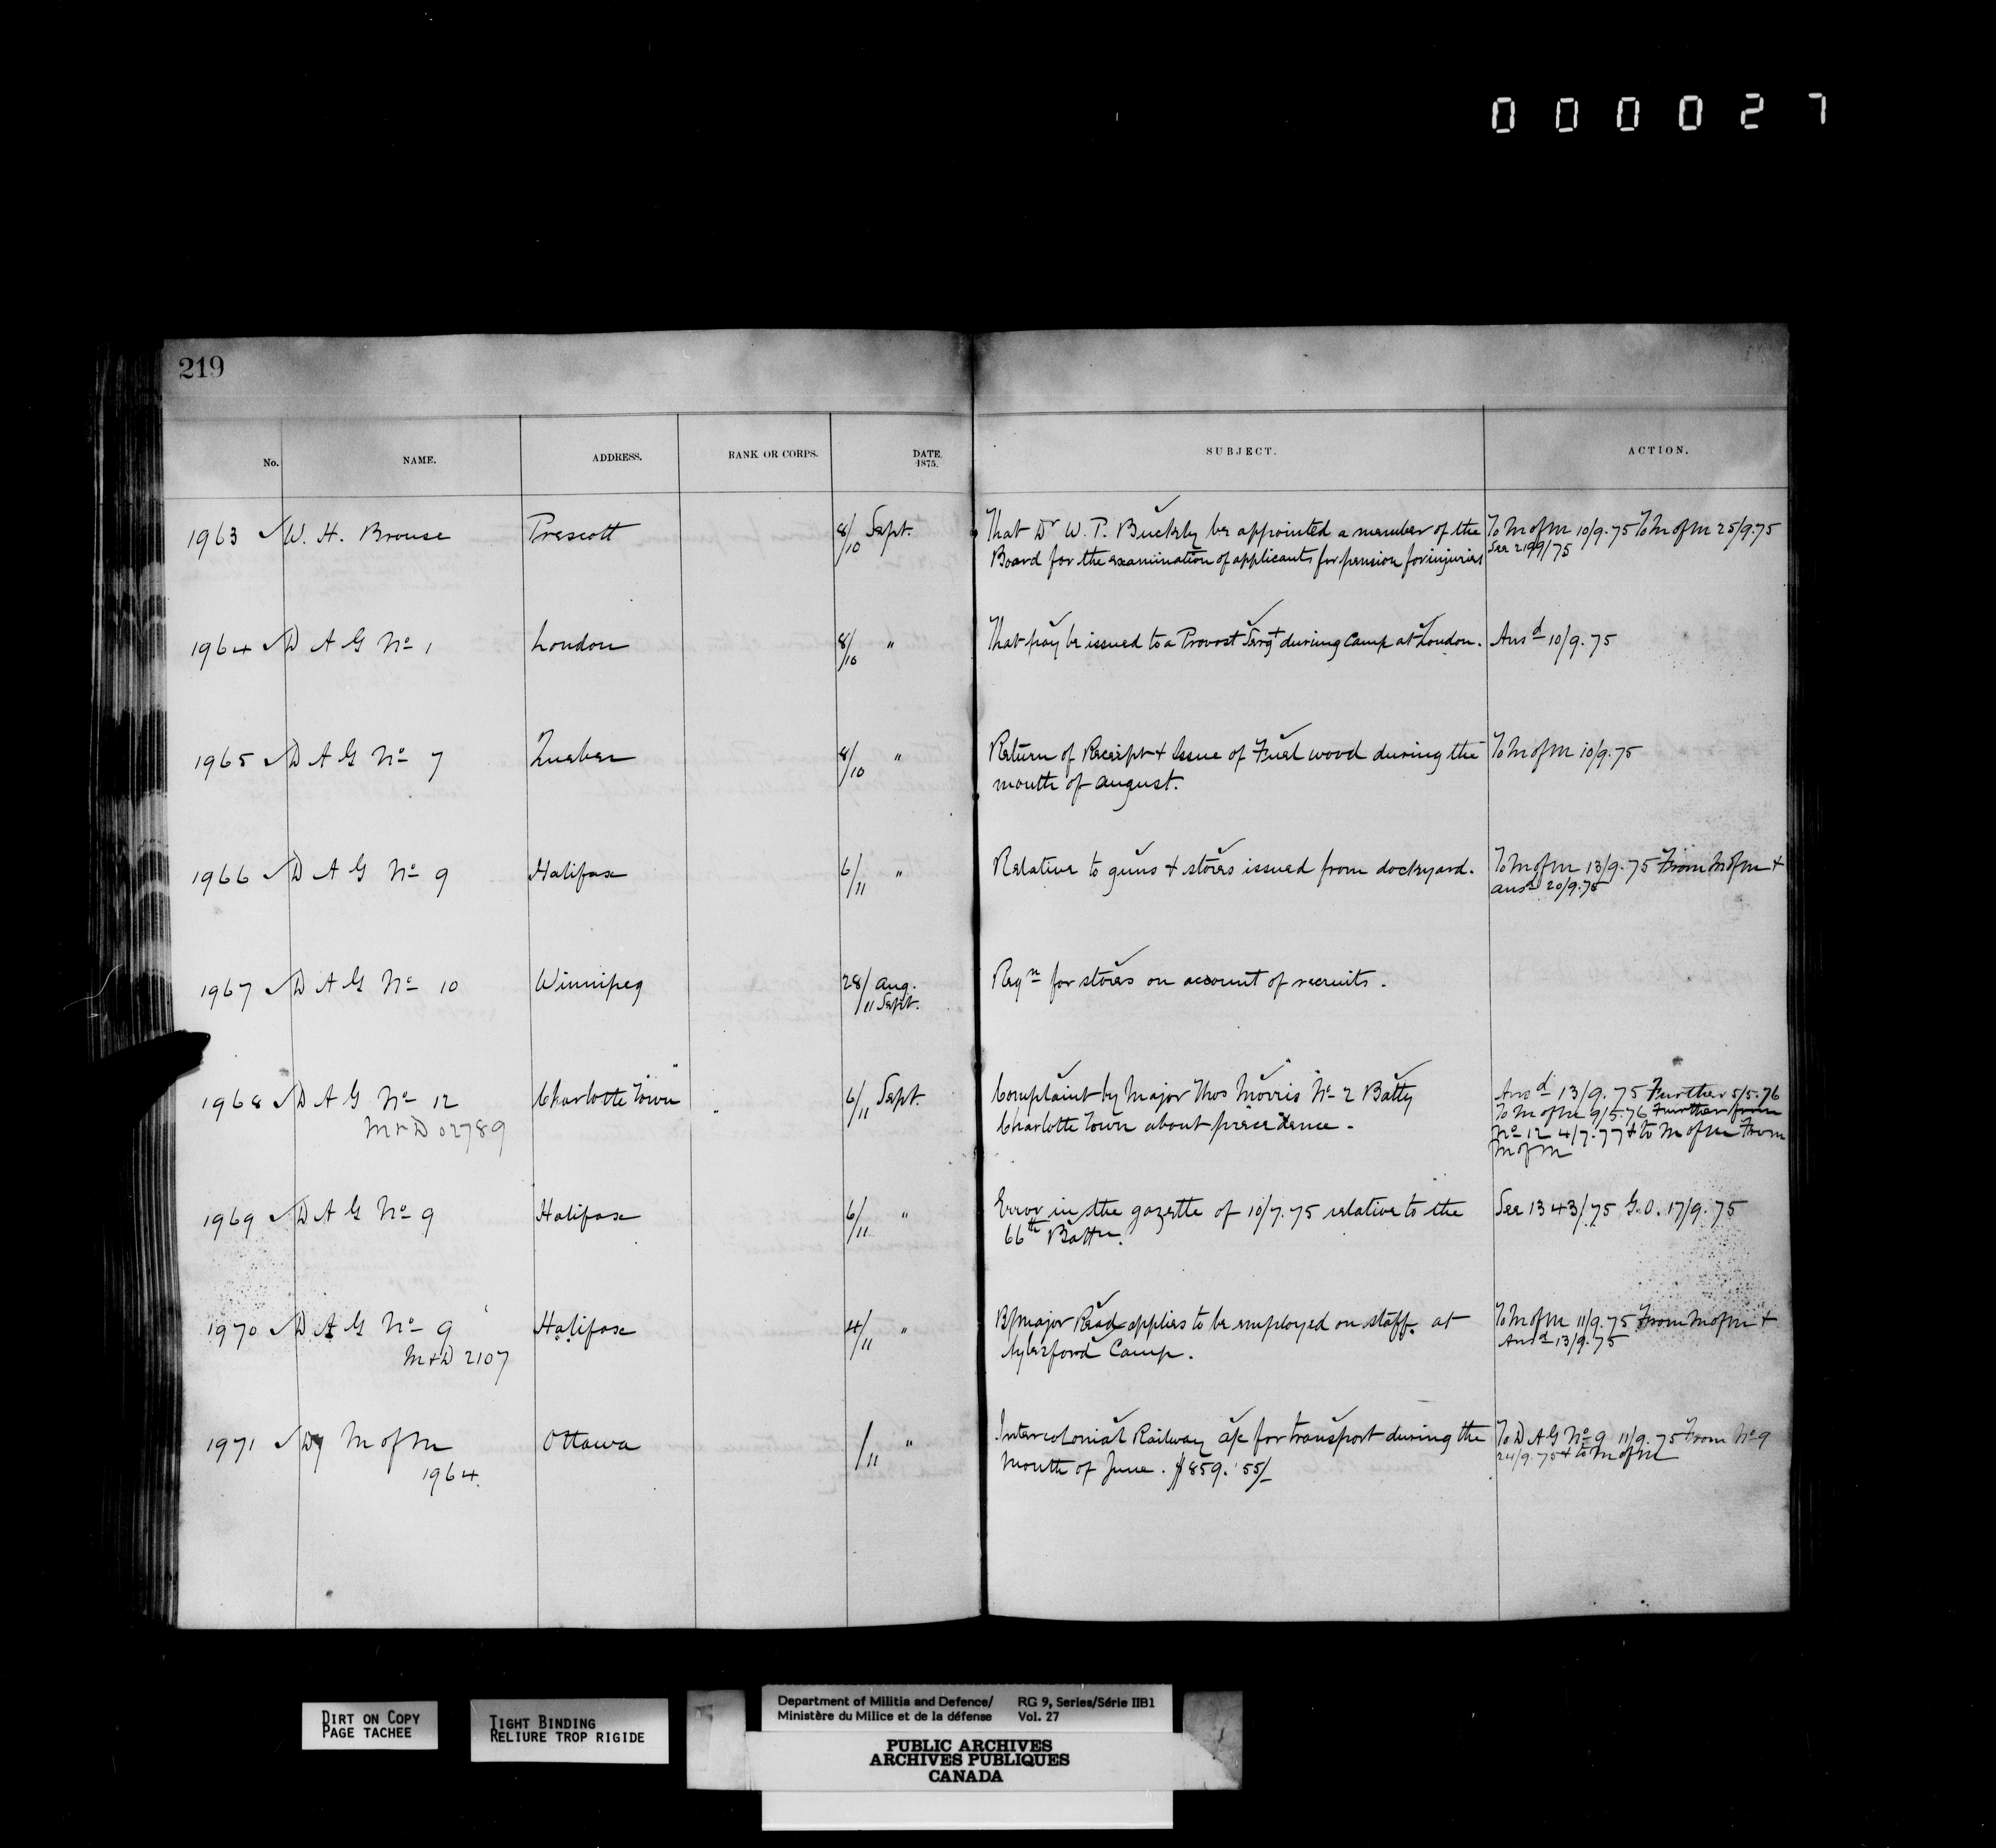 000027
219
No. NAME. ADDRESS. RANK OR CORPS. DATE. 1875. SUBJECT. ACTION.
1963 W. H. Brouse Prescott 8/10 Sept. That Dr W. P. Buckley be appointed a member of the To M of M 10/9.75 To M of M 25/9.75
Board for the examination of applicants for pension for injuries See 2199/75
1964 D A G No 1 London 8/10 " That pay be issued to a Provost Sergt during Camp at London. Ansd 10/9.75
1965 D A G No 7 Quebec 8/10 " Return of Receipt & Issue of Fuel wood during the To M of M 10/9.75
month of August.
1966 D A G No 9 Halifax 6/11 " Relative to guns & stores issued from dockyard. To M of M 13/9.75 From M of M &
ansd 20/9.75
1967 D A G No 10 Winnipeg 28/ Aug. Reqn for stores on account of recruits.
/11 Sept.
1968 D A G No 12 Charlotte Town 6/11 Sept. Complaint by Major Thos Morris No 2 Batty Ansd 13/9.75 Further 5/5.76
M & D 02789 Charlotte Town about precedence. To M of M 9/5.76 Further from
No 12 4/7.77 & to M of M From
M of M
1969 D A G No 9 Halifax 6/11 " Error in the gazette of 10/7.75 relative to the See 1343/75 G.O. 17/9.75
66th Battn.
1970 D A G No 9 Halifax 4/11 " B/Major Read applies to be employed on staff at To M of M 11/9.75 From M of M &
M & D 2107 Aylesford Camp. Ansd 13/9.75
1971 Dy M of M Ottawa /11 " Intercolonial Railway a/c for transport during the To D A G No 9 11/9.75 From No 9
1964. Month of June. $859.55/ 24/9.75 & to M of M
DIRT ON COPY
PAGE TACHEE
TIGHT BINDING
RELIURE TROP RIGIDE
Department of Militia and Defence/ RG 9, Series/Série IIB1
Ministère du Milice et de la défense Vol. 27
PUBLIC ARCHIVES
ARCHIVES PUBLIQUES
CANADA